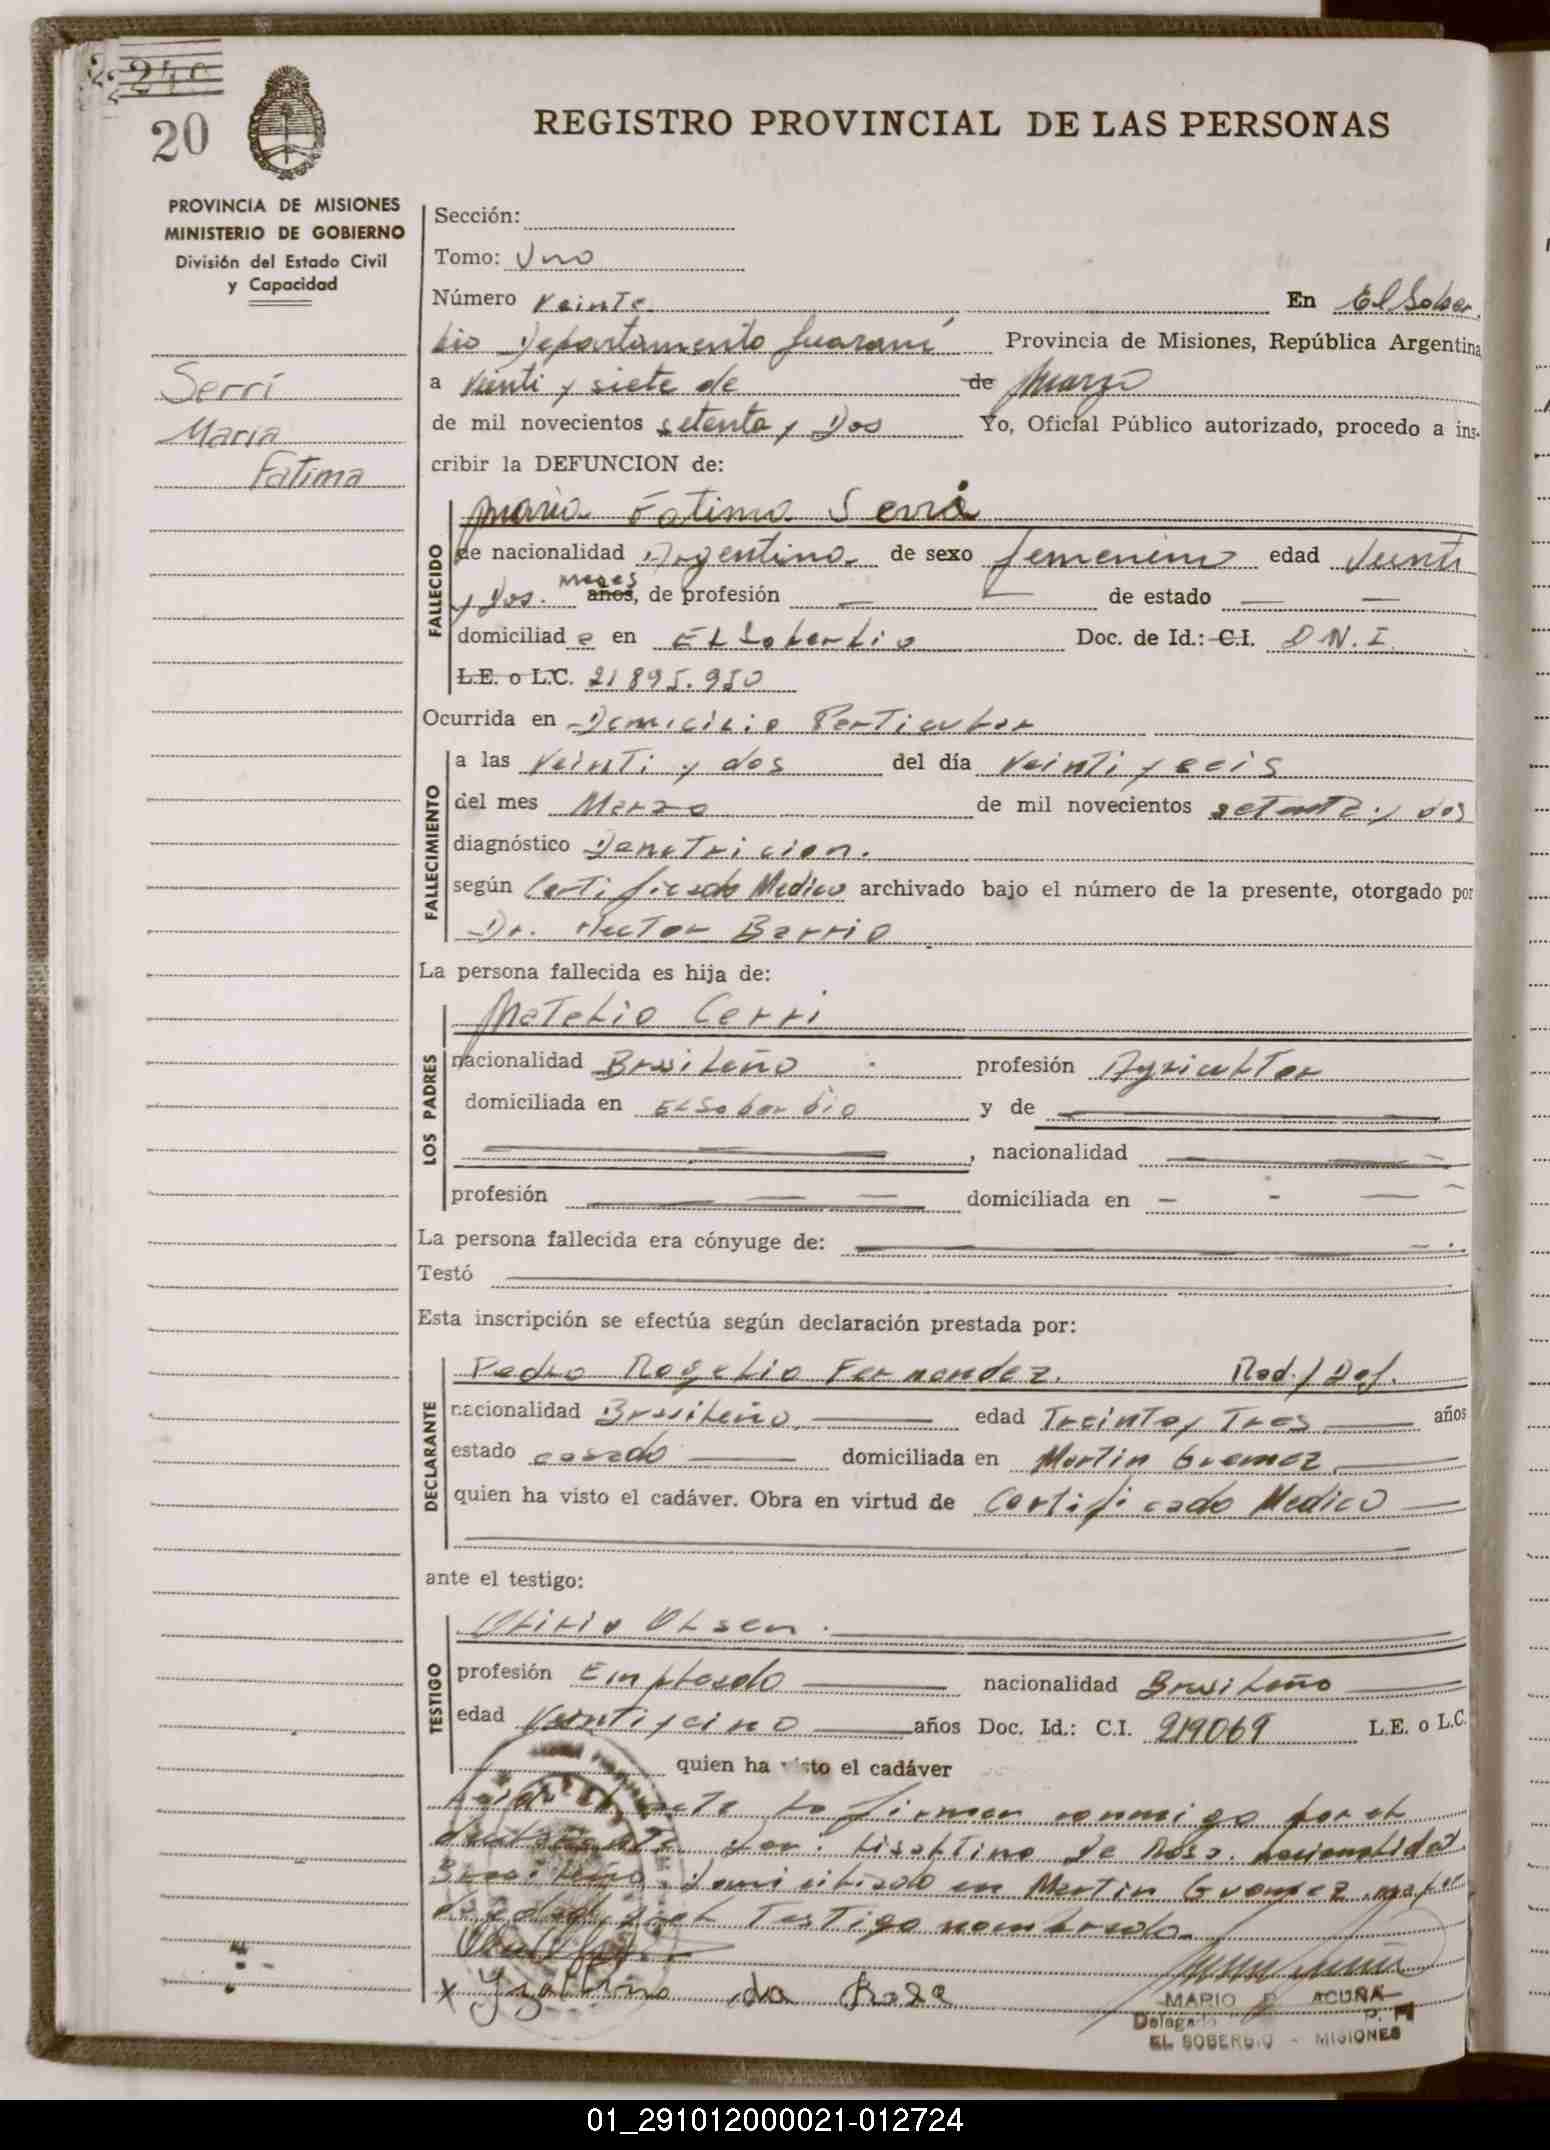 20
REGISTRO PROVINCIAL DE LAS PERSONAS
PROVINCIA DE MISIONES
MINISTERIO DE GOBIERNO
División del Estado Civil
y Capacidad
Serri
Maria
Fatima
Sección:
Tomo: Uno
Número Veinte En El Sober
bio Departamento Guaraní Provincia de Misiones, República Argentina
a Veinti y siete de de Marzo
de mil novecientos setenta y Dos Yo, Oficial Público autorizado, procedo a ins-
cribir la DEFUNCION de:
Maria Fatima Serri
FALLECIDO
de nacionalidad Argentina de sexo femenino edad Veinti
y Dos. meses años, de profesión — — de estado — —
domiciliad a en El Soberbio Doc. de Id.: C.I. D.N.I.
L.E. o L.C. 21895.950
Ocurrida en Domicilio Particular
FALLECIMIENTO
a las Veinti y dos del día Veinti y seis
del mes Marzo de mil novecientos setenta y dos
diagnóstico Denutricion.
según Certificado Medico archivado bajo el número de la presente, otorgado por
Dr. Hector Barrio
La persona fallecida es hija de:
LOS PADRES
Matelio Cerri
nacionalidad Brasileño profesión Agricultor
domiciliada en El Soberbio y de
, nacionalidad
profesión domiciliada en
La persona fallecida era cónyuge de:
Testó
Esta inscripción se efectúa según declaración prestada por:
DECLARANTE
Pedro Rogelio Fernandez. Rad./Def.
nacionalidad Brasileño edad Treinta y Tres años
estado casado domiciliada en Martin Guemez
quien ha visto el cadáver. Obra en virtud de Certificado Medico
ante el testigo:
TESTIGO
Olirio Olsen
profesión Empleado nacionalidad Brasileño
edad Veinti y cino años Doc. Id.: C.I. 219069 L.E. o L.C.
quien ha visto el cadáver
acta lo firman conmigo por el
declarante Don: Lisaltino de Rosa nacionalidad
Brasileño. Domiciliado en Martin Guemez mayor
de edad y el Testigo nombrado.
x Yzaltino da Rosa
MARIO P. ACUÑA
Delegado P. R
EL SOBERBIO - MISIONES
01_291012000021-012724